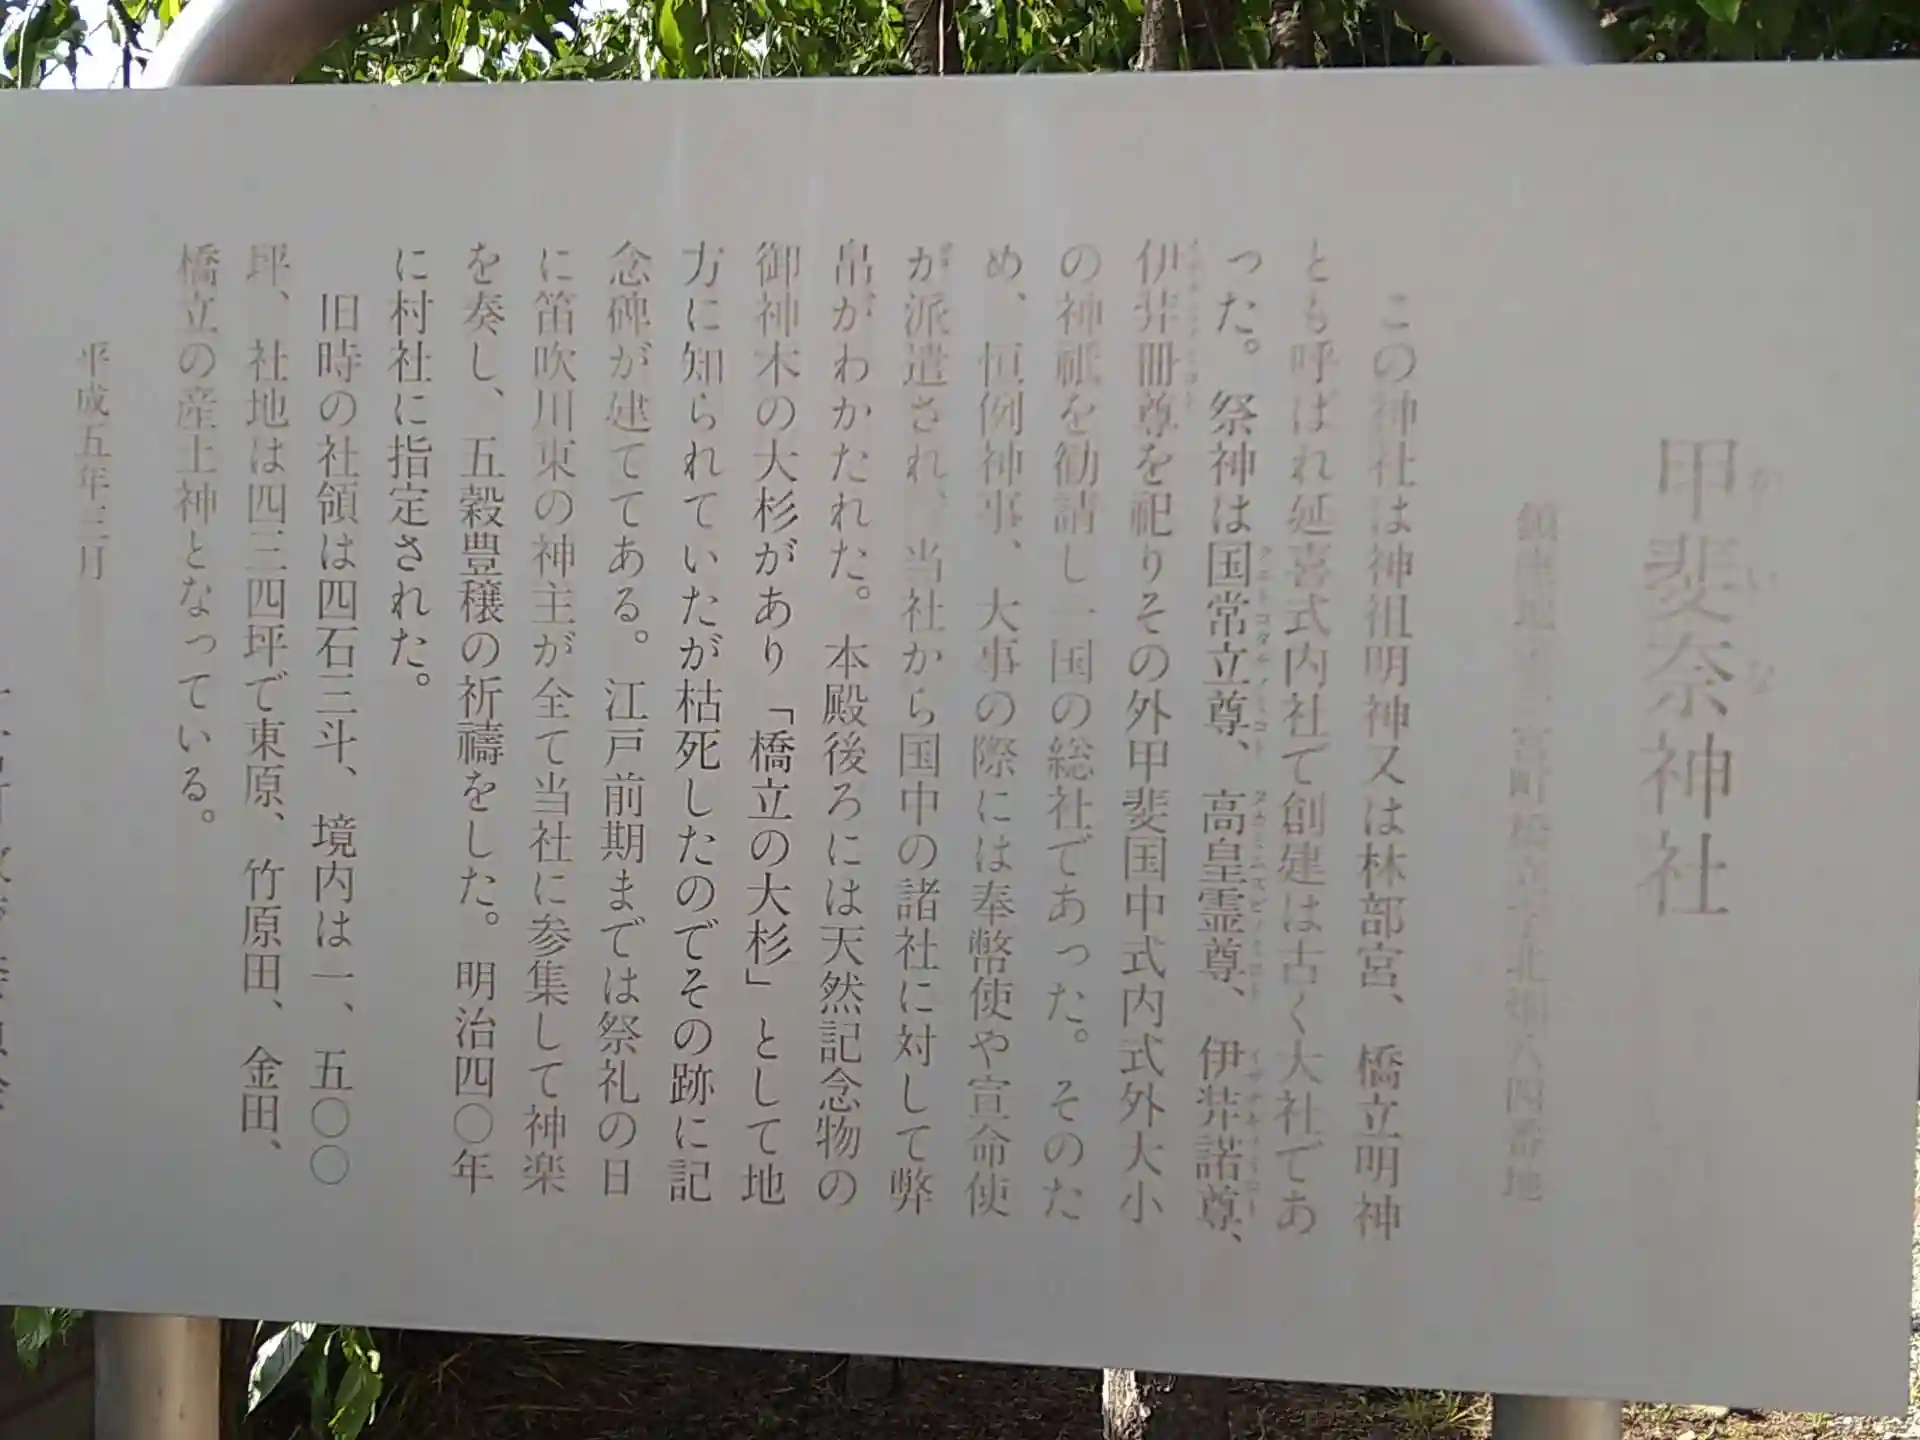 甲斐奈神社
かいな
鎮座地 一宮町橋立字北畑八四番地
この神社は神祖明神又は林部宮、橋立明神
とも呼ばれ延喜式内社で創建は古く大社であ
った。祭神は国常立尊、高皇霊尊、伊弉諾尊、
伊弉冊尊を祀りその外甲斐国中式内式外大小
の神祇を勧請し一国の総社であった。そのた
め、恒例神事、大事の際には奉幣使や宣命使
が派遣され、当社から国中の諸社に対して弊
帛がわかたれた。本殿後ろには天然記念物の
御神木の大杉があり「橋立の大杉」として地
方に知られていたが枯死したのでその跡に記
念碑が建ててある。江戸前期までは祭礼の日
に笛吹川東の神主が全て当社に参集して神楽
を奏し、五穀豊穣の祈禱をした。明治四〇年
に村社に指定された。
旧時の社領は四石三斗、境内は一、五〇〇
坪、社地は四三四坪で東原、竹原田、金田、
橋立の産土神となっている。
平成五年三月